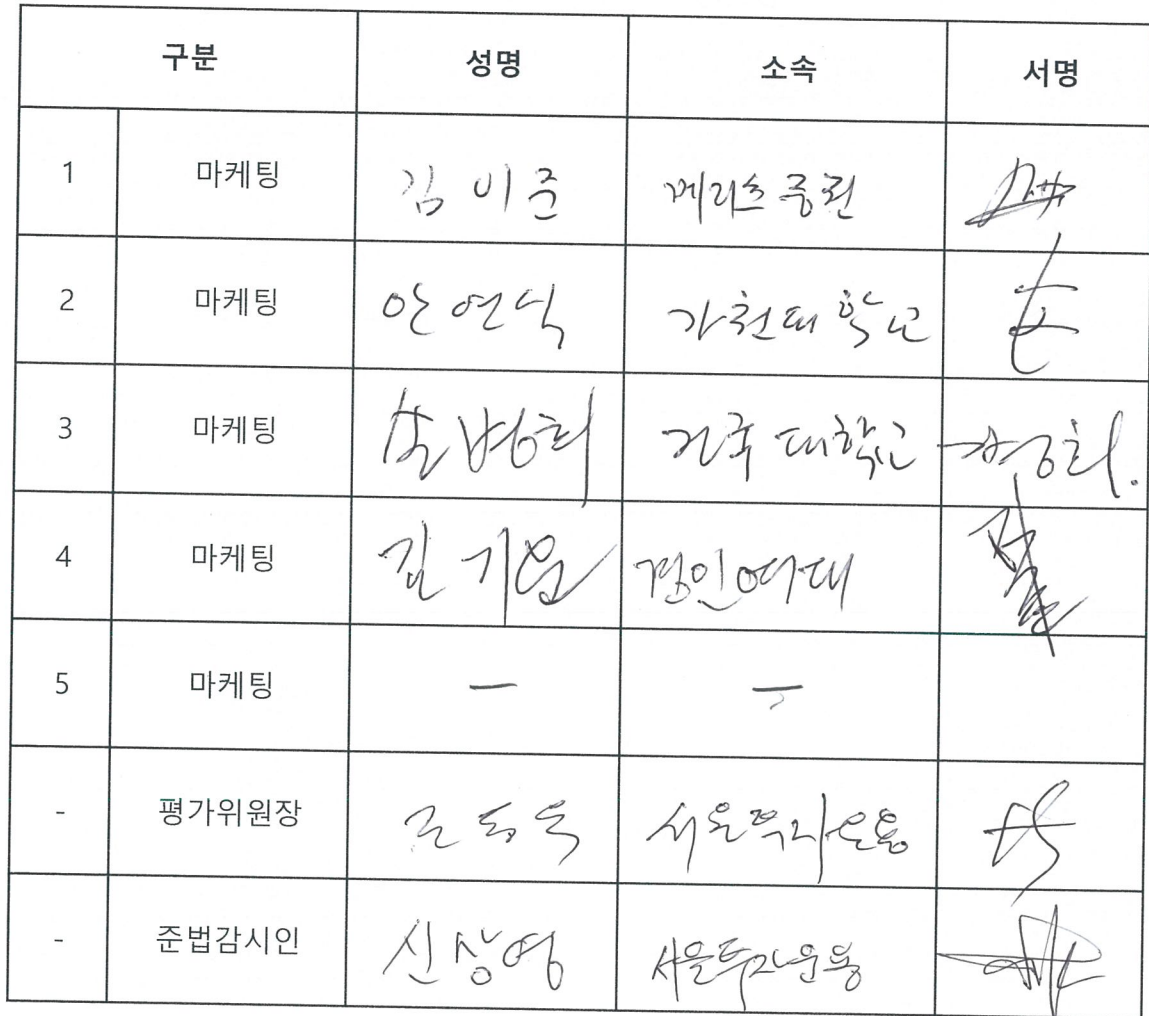 구분 성명 소속 서명
1 마케팅 김이준 메리츠증권
2 마케팅 안연식 가천대학교
3 마케팅 손병희 건국대학교 병희.
4 마케팅 경인여대
5 마케팅 - -
- 평가위원장 서울투자운용
- 준법감시인 신상영 서울투자운용